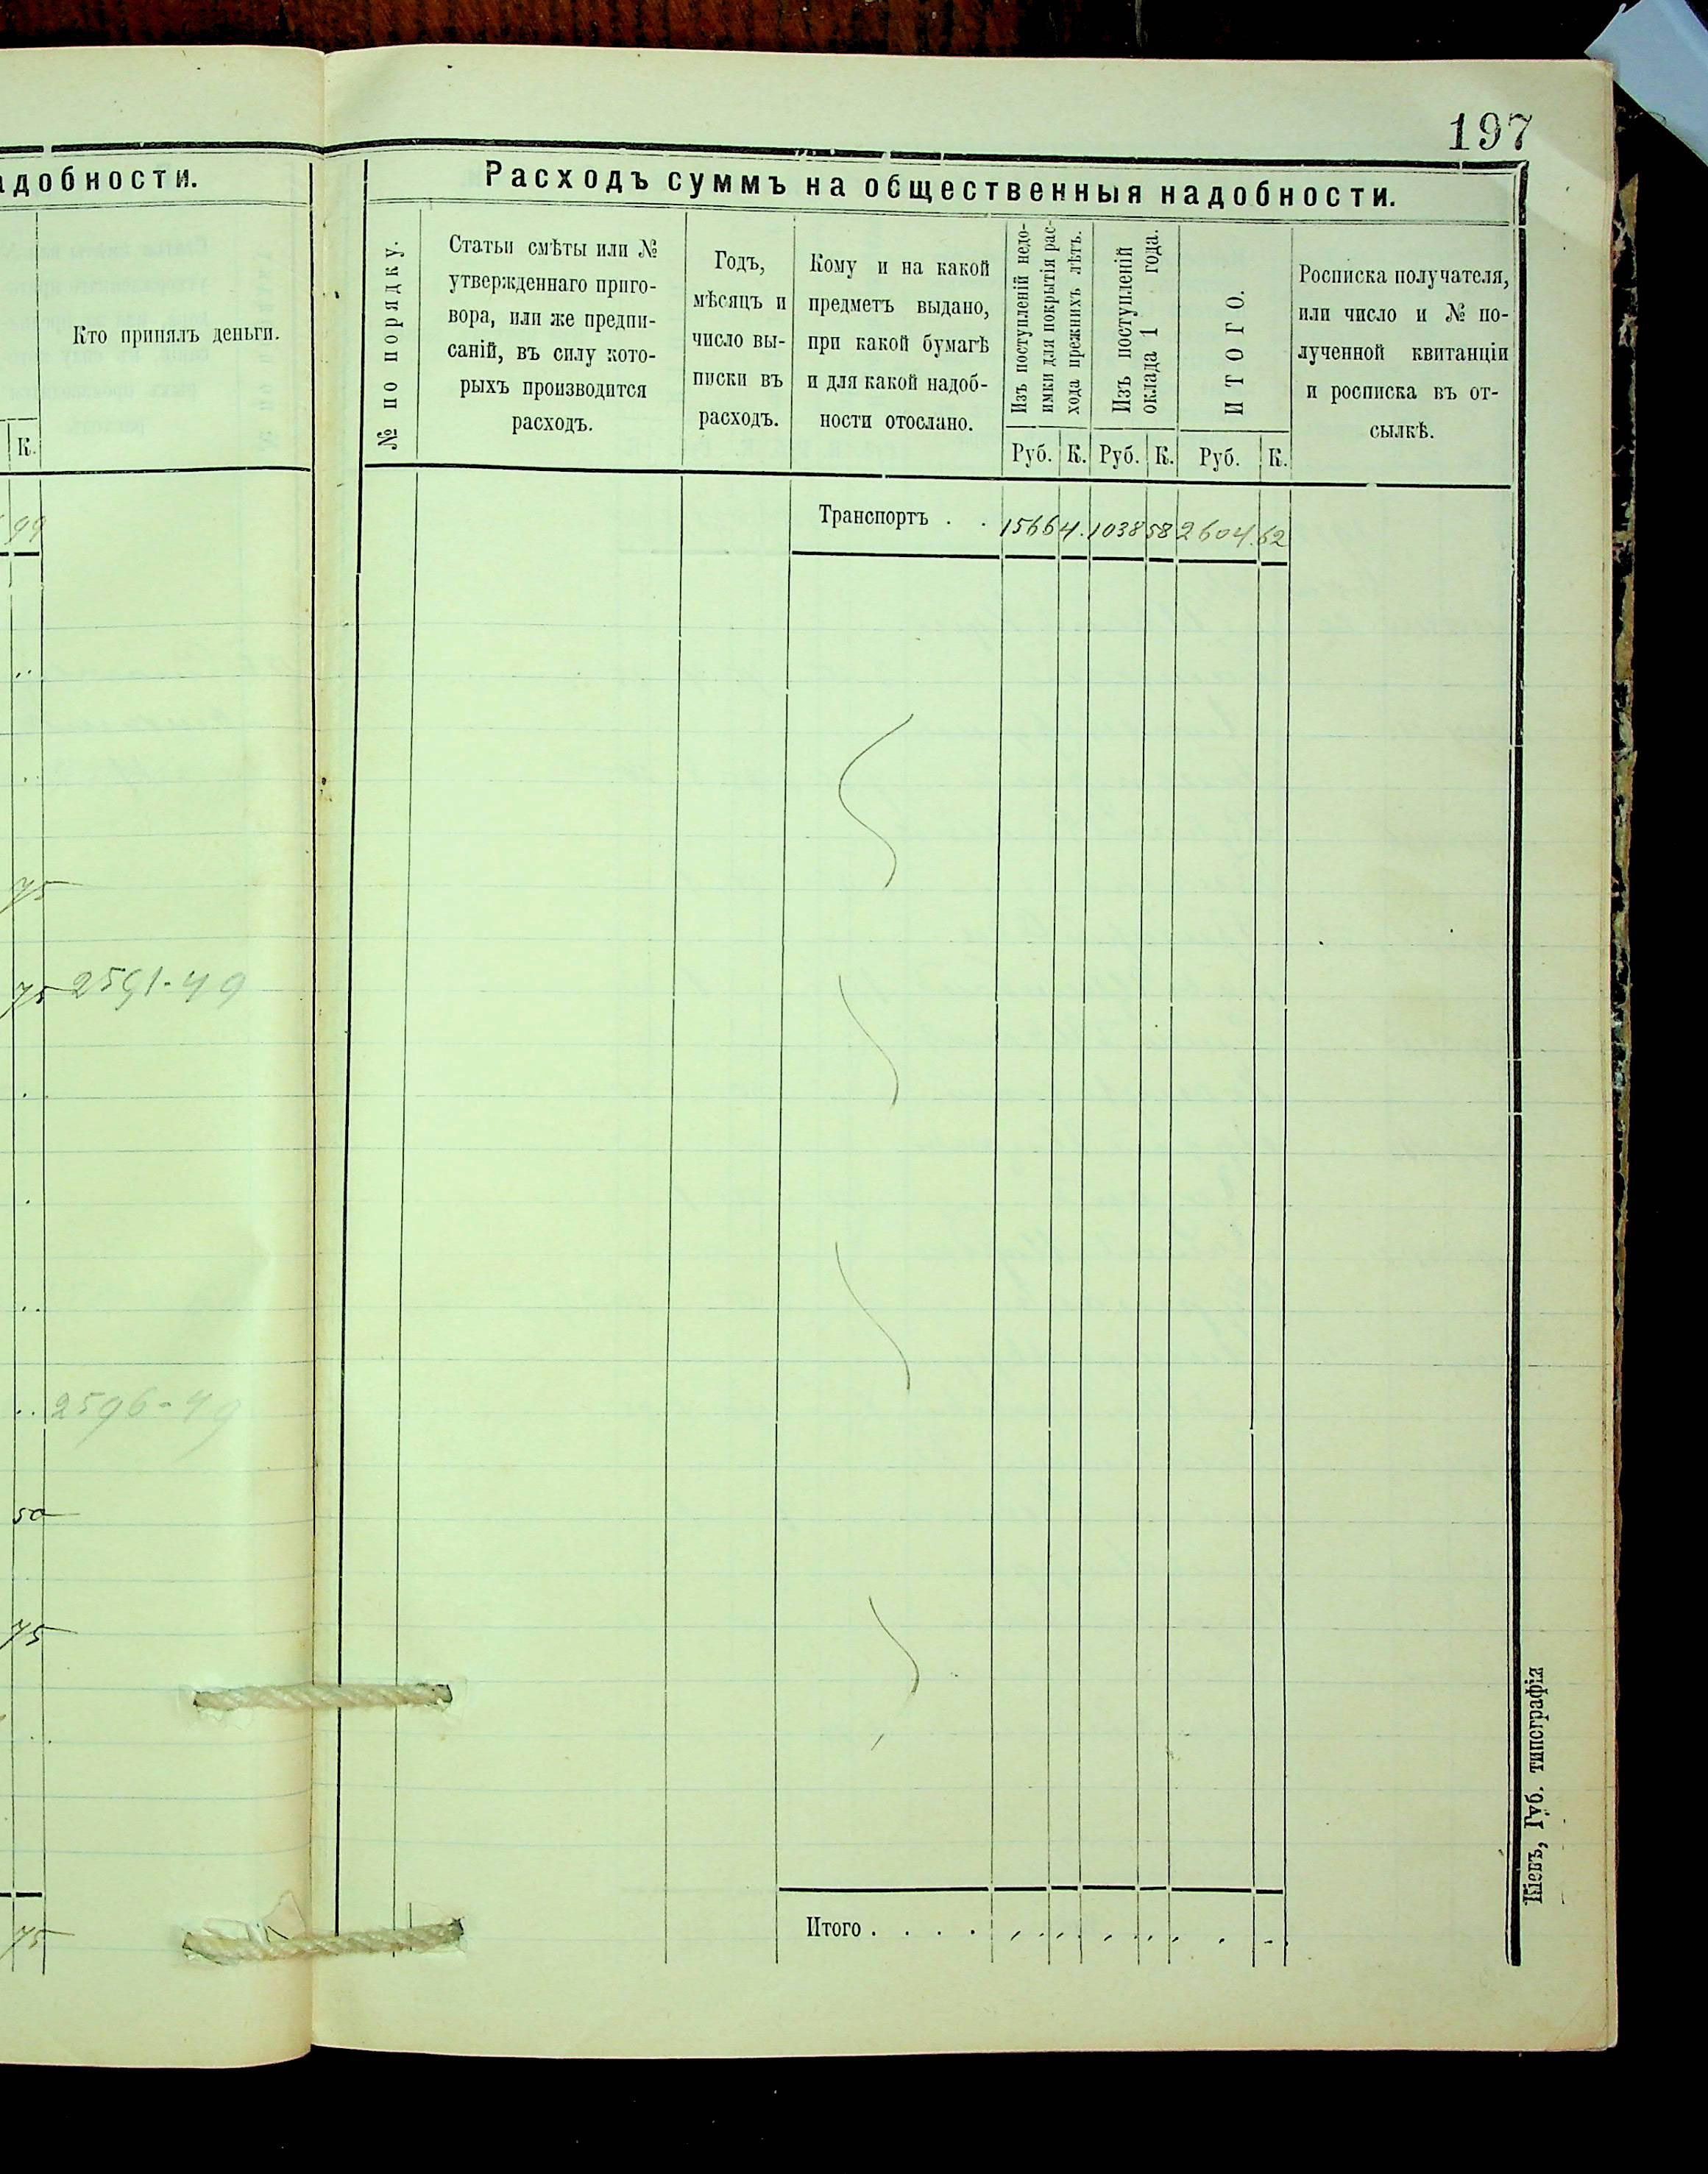 197
адобности.
Кто принялъ деньги.
К.
99
75
75 2591-49
2596-49
50
75
75
Расходъ суммъ на общественныя надобности.
№ по порядку.
Статьи смѣты или №
утвержденнаго приго-
вора, или же предпи-
саній, въ силу кото-
рыхъ производится
расходъ.
Годъ,
мѣсяцъ и
число вы-
писки въ
расходъ.
Кому и на какой
предметъ выдано,
при какой бумагѣ
и для какой надоб-
ности отослано.
Изъ поступленій недо-
имки для покрытія рас-
хода прежнихъ лѣтъ.
Изъ поступленій
оклада 1 года.
ИТОГО.
Росписка получателя,
или число и № по-
лученной квитанціи
и росписка въ от-
сылкѣ.
Руб. К. Руб. К. Руб. К.
Транспортъ . . 1566 4. 1038 58 2604. 62
Итого . . . .
Кіевъ, Губ. типографія